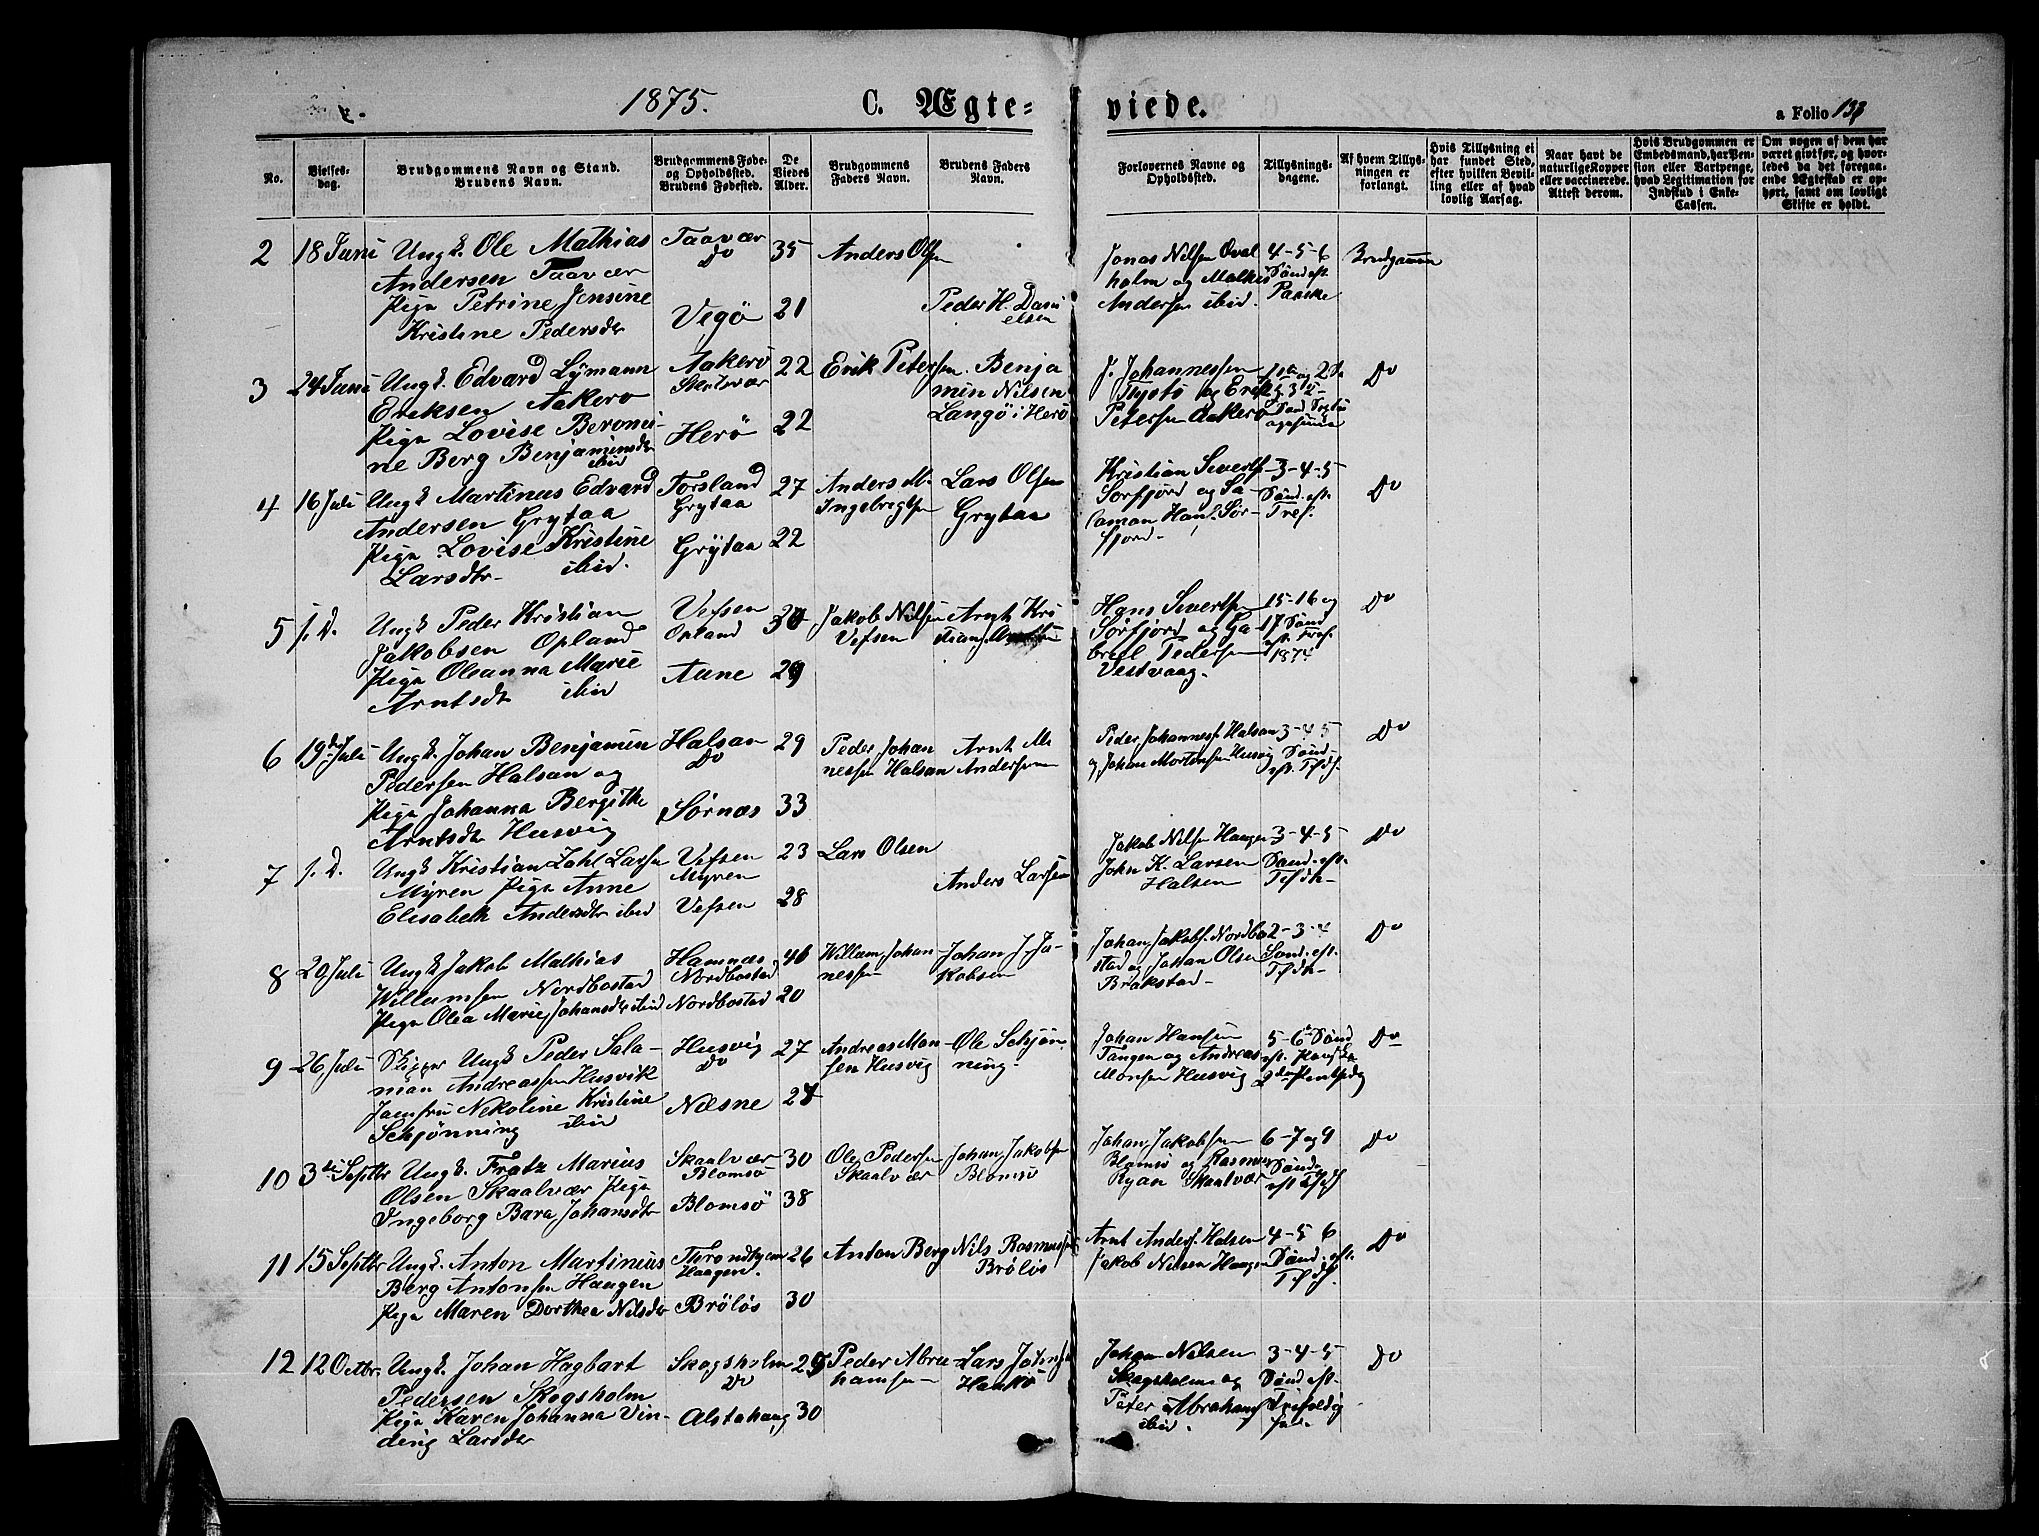 1875.
C. Ægte=
viede.
a Folio 133
No.
Vielses-dag.
Brudgommens Navn og Stand. Brudens Navn.
Brudgommens Føde- og Opholdssted. Brudens Fødested.
De Viedes Alder.
Brudgommens Faders Navn.
Brudens Faders Navn.
Forlovernes Navne og Opholdssted.
Tillysnings-dagene.
Af hvem Tillysningen er forlangt.
Hvis Tillysning ei har fundet Sted, efter hvilken Bevilling eller af hvad lovlig Aarsag.
Naar havt de naturlige Kopper eller vaccinerede. Attest derom.
Hvis Brudgommen er Embedsmand, har Pension eller Vartpenge, hvad Legitimation for Indskud i Enke-Cassen.
Om nogen af dem har været givt før, og hvorledes da det foregaaende Ægteskab er ophørt, samt om lovligt Skifte er holdt.
2 18 Juni Ungk. Ole Mathias Taavær 35 Anders Olsen Jonas Nilsen Qval 4-5-6 Brudgommen
Andersen Taavær Do holm og Mathis Sønd. eft.
Pige Petrine Jensine Vegö 21 Peder H. Dani Andersen ibid. Paaske
Kristine Pedersdr elsen
3 24 Juni Ungk. Edvard Lymann Aakerö 22 Erik Petersen Benja J. Johannessen 1ste og 2den Do
Eriksen Aakerö min Nilsen Tyøtö og Erik
Pige Lovise Beroni- Herö 22 Langö i Herö Petersen Aakerö
ne Berg Benjaminsdr ibid
4 16 Juli Ungk Martinus Edvard Forsland 27 Anders M. Lars Olsen Kristian Sivertsen 3-4-5 Do
Andersen Grytaa Grytaa Ingebrigtsen Grytaa Sörfjord og Sa- Sønd. eft.
Pige Lovise Kristine Grÿtaa 22 lamon Hans. Sör- Tref.
Larsdtr ibid. fjord
5 s. D. Ungk Peder Kristian Vefsen 30 Jakob Nilsen Arnt Kri Hans Sivertsen 15-16 og Do
Jakobsen Opland Opland Vefsen stians. Sörfjord og Ga- 17 Sønd
Pige Oleanna Marie Aune 29 briel Pedersen eft. Tref.
Arntsdt ibid Vestvaag. 1874
6 19de Juli Ungk. Johan Benjamin Halsan 29 Peder Johan Arnt M. Peder Johanness. Halsan 3-4-5 Do
Pedersen Halsan og Do nessen Halsan Andersen og Johan Mortensen Husvig Sønd.
Pige Johanna Bergithe Sörnæs 33 eft. Tfdh.
Arntsdr Husvig
7 s. D. Ungk Kristian Zahl Larsen Vefsen 23 Lars Olsen Jakob Nilsen Haugen 3-4-5 Do
Myren Pige Anne Myren Anders Larsen John K. Larsen Sønd. eft.
Elisabeth Andersdtr ibid Vefsen 28 Halsen Tfdh
8 20 Juli Ungk Jakob Mathias Hamnæs 46 Willum Johan- Johan J. Ja- Johan Jakobs. Nordbo 2-3-4 Do
Willumsen Nordbostad Nordbostad nessen kobsen stad og Johan Olsen Sønd. eft.
Pige Olea Marie Johansdr ibid Nordbostad 20 Brakstad Tfdh
9 26 Juli Skipper Ungk Peder Sala- Husvig 27 Andreas Mon- Ole Schjön- Johan Hansen 5-6 Sönd Do
mon Andreassen Husvik Do sen Husvig ning. Tangen og Andreas eft. Paaske
Jomfru Nekoline Kristine Næsne 27 Monsen Husvig 2den Pintsedg
Schjönning ibid
10 3die Septbr Ungk. Fratz Marius Skaalvær 30 Ole Pedersen Johan Jakobsen Johan Jakobsen 6-7 og 9 Do
Olsen Skaalvær Pige Blomsö Skaalvær Blomsö Blomsö og Rasmus Sønd.
Ingeborg Bara Johansdtr Blomsö 38 Ryan Skaalvær eft Tfdh
11 15 Septbr Ungk. Anton Martinius Throndhjem 26 Anton Berg Nils Rasmussen Arnt Anders. Halsen 4-5 6 Do
Berg Antonsen Haugen Haugen. Brölös Jakob Nilsen Haugen Sønd. eft.
Pige Maren Dorthea Nilsdr Brölös 30 Tfdh.
12 12 Octbr. Ungk. Johan Hagbart Skogsholm 29 Peder Abra- Lars Johnsen Johan Nilsen 3-4-5 Do
Pedersen Skogsholm Do hamsen Haukö Skogsholm og Sønd. eft.
Pige Karen Johanna Vin- Alstahaug 30 Peter Abrahams. Trefoldig
ding Larsdr ibid.